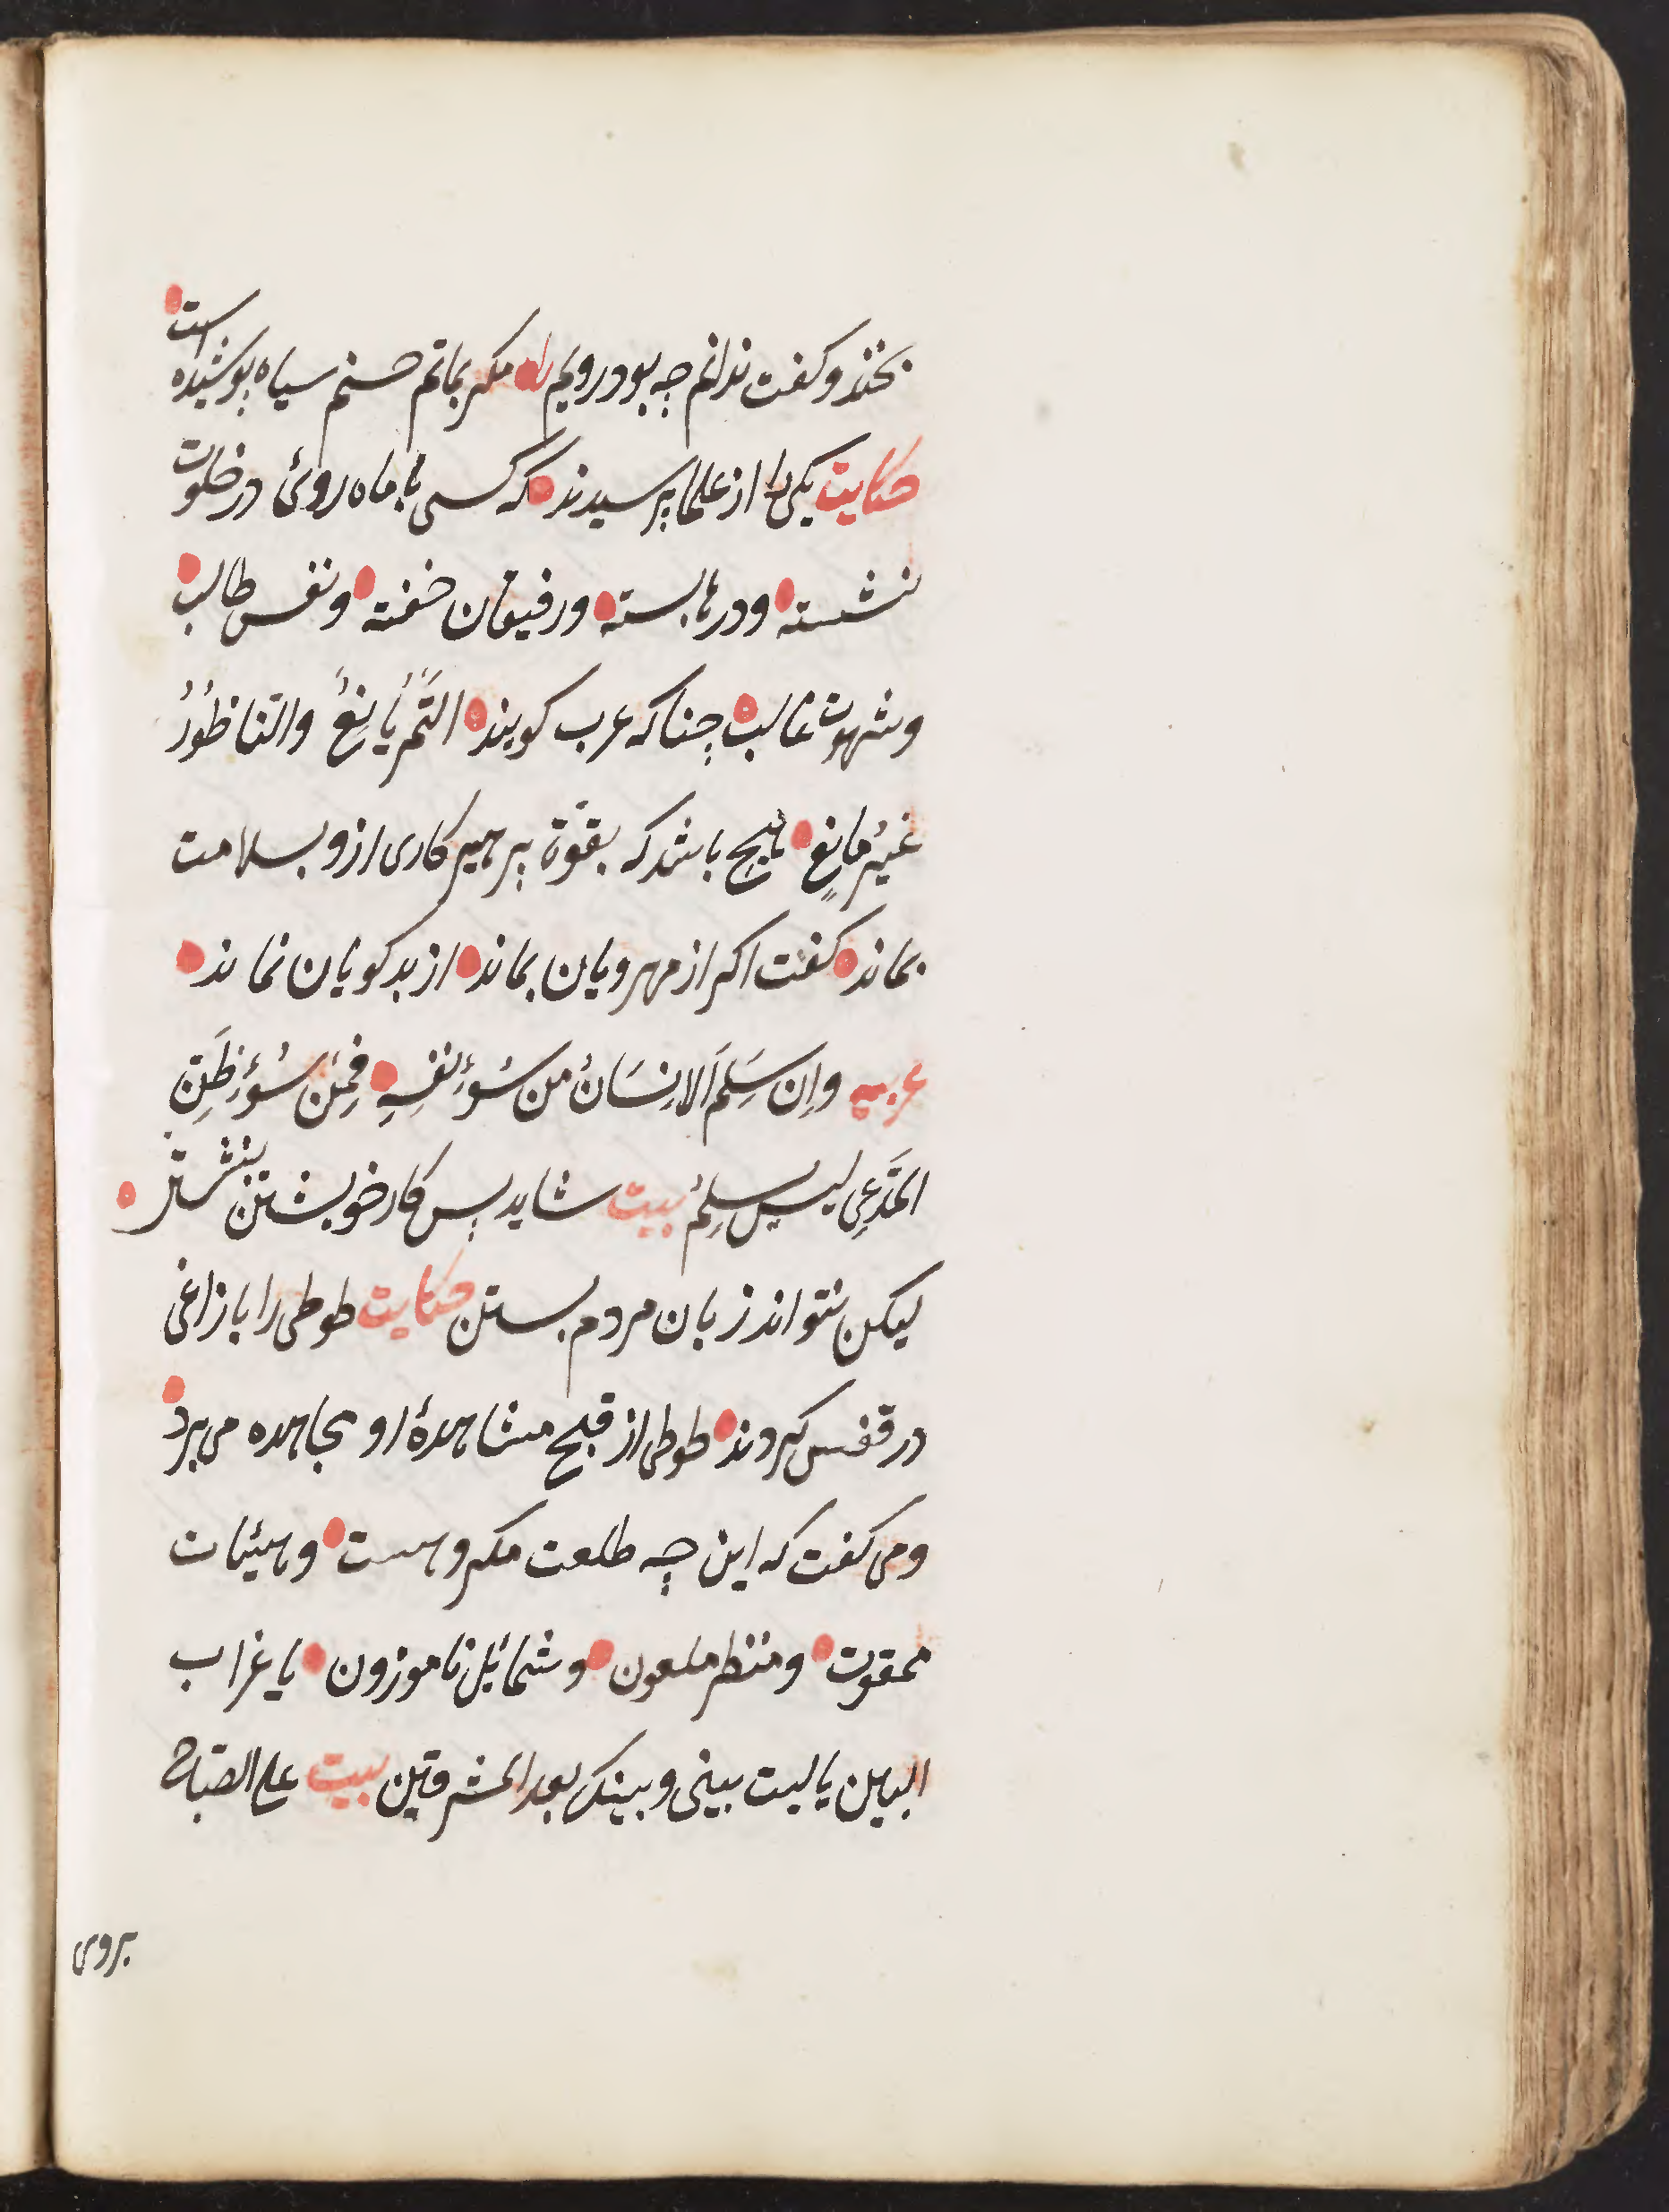 بخندد و کفت ندانم چه بود رویم را مکر بماتم حسنم سیاه پوشیده است
حکایت یکی را از علما پرسیدند که کسی با ماه روئ در خلوت
نشسته و درها بسته و رفیقان خفته و نفس طالب
و شهوت غالب چناکه عرب کویند التَّمرُ یَانِعٌ والنا ظُورُ
غَیرُ مَانِعٍ هیچ باشد که بقوة پرهیزکاری ازو بسلامت
بماند کفت اکر از مهرویان بماند از بدکویان نماند
عربیه واِن سَلِمَ الاِنسَانُ من سُوءِ نفسِهِ فَمِن سُوءِ ظَنِّ
المدَّعِی لیس یسلمُ بیت شاید پس کار خویشتن بنشستن
لیکن نتواند زبان مردم بستن حکایت طوطی را با زاغی
در قفس کردند طوطی از قبح مشاهدهٔ او مجاهده می برد
و می کفت که این چه طلعت مکروهست و هیئات
ممقوت و منظر ملعون و شمائل ناموزون یا غراب
البین یا لیت بینی و بینک بعد المشرقین بیت علی الصباح
بروی